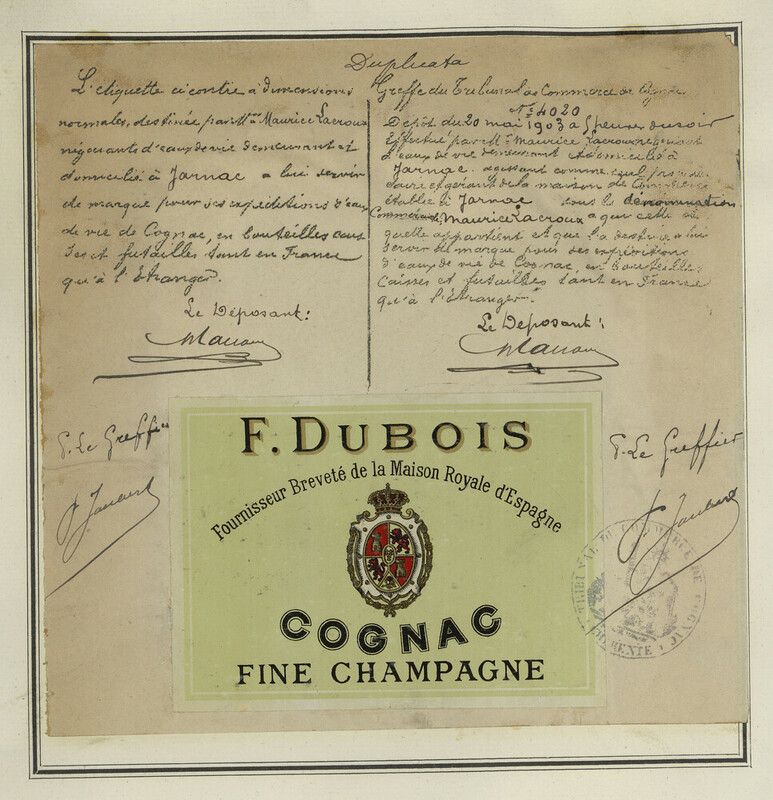 Duplicata
L'étiquette ci contre à dimensions
normales, destinée par Mr. Maurice Lacroux
négociant d'eaux de vie demeurant et
domicilié à Jarnac a lui servir
de marque pour ses expéditions d'eaux
de vie de Cognac, en bouteilles caisses
et futailles tant en France
qu'à l'Etranger.
Le Déposant:
Greffe du Tribunal de Commerce de Cognac
N° 4020
Dépôt du 20 mai 1903 à heures du soir
Effectué par Mr. Maurice Lacroux négociant
d'eaux de vie demeurant et domicilié à
Jarnac agissant comme seul proprié
taire et gérant de la maison de Commerce
établie à Jarnac sous la dénomination
Commerciale Maurice Lacroux a que cette éti
quette appartient et que l'a destinée a lui
servir de marque pour ses expéditions
d'eaux de vie de Cognac, en bouteilles
Caisses et futailles tant en France
qu'à l'Etranger.
Le Déposant:
P. Le Greffier
P. Le Greffier
F. DUBOIS
Fournisseur Breveté de la Maison Royale d'Espagne
COGNAC
FINE CHAMPAGNE
TRIBUNAL DE COMMERCE DE COGNAC
CHARENTE